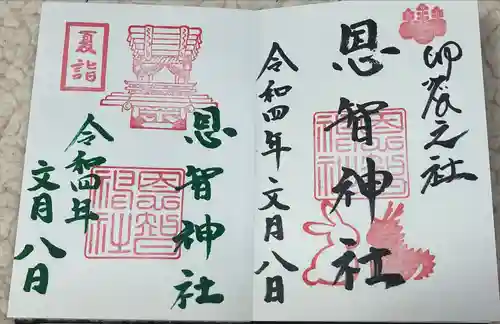 卯辰之社
恩智神社
令和四年文月八日
夏詣
恩智神社
令和四年
文月八日
恩智神社
恩智神社